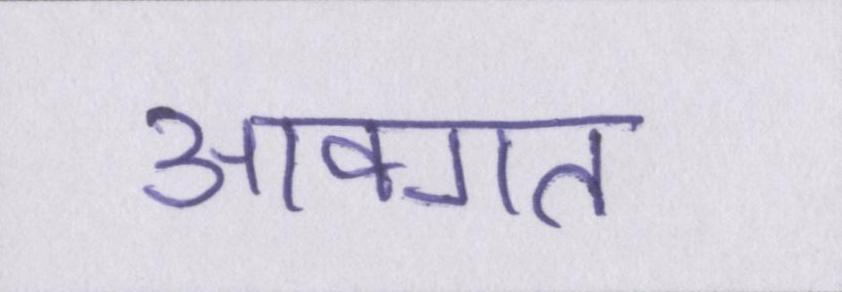 आवगत